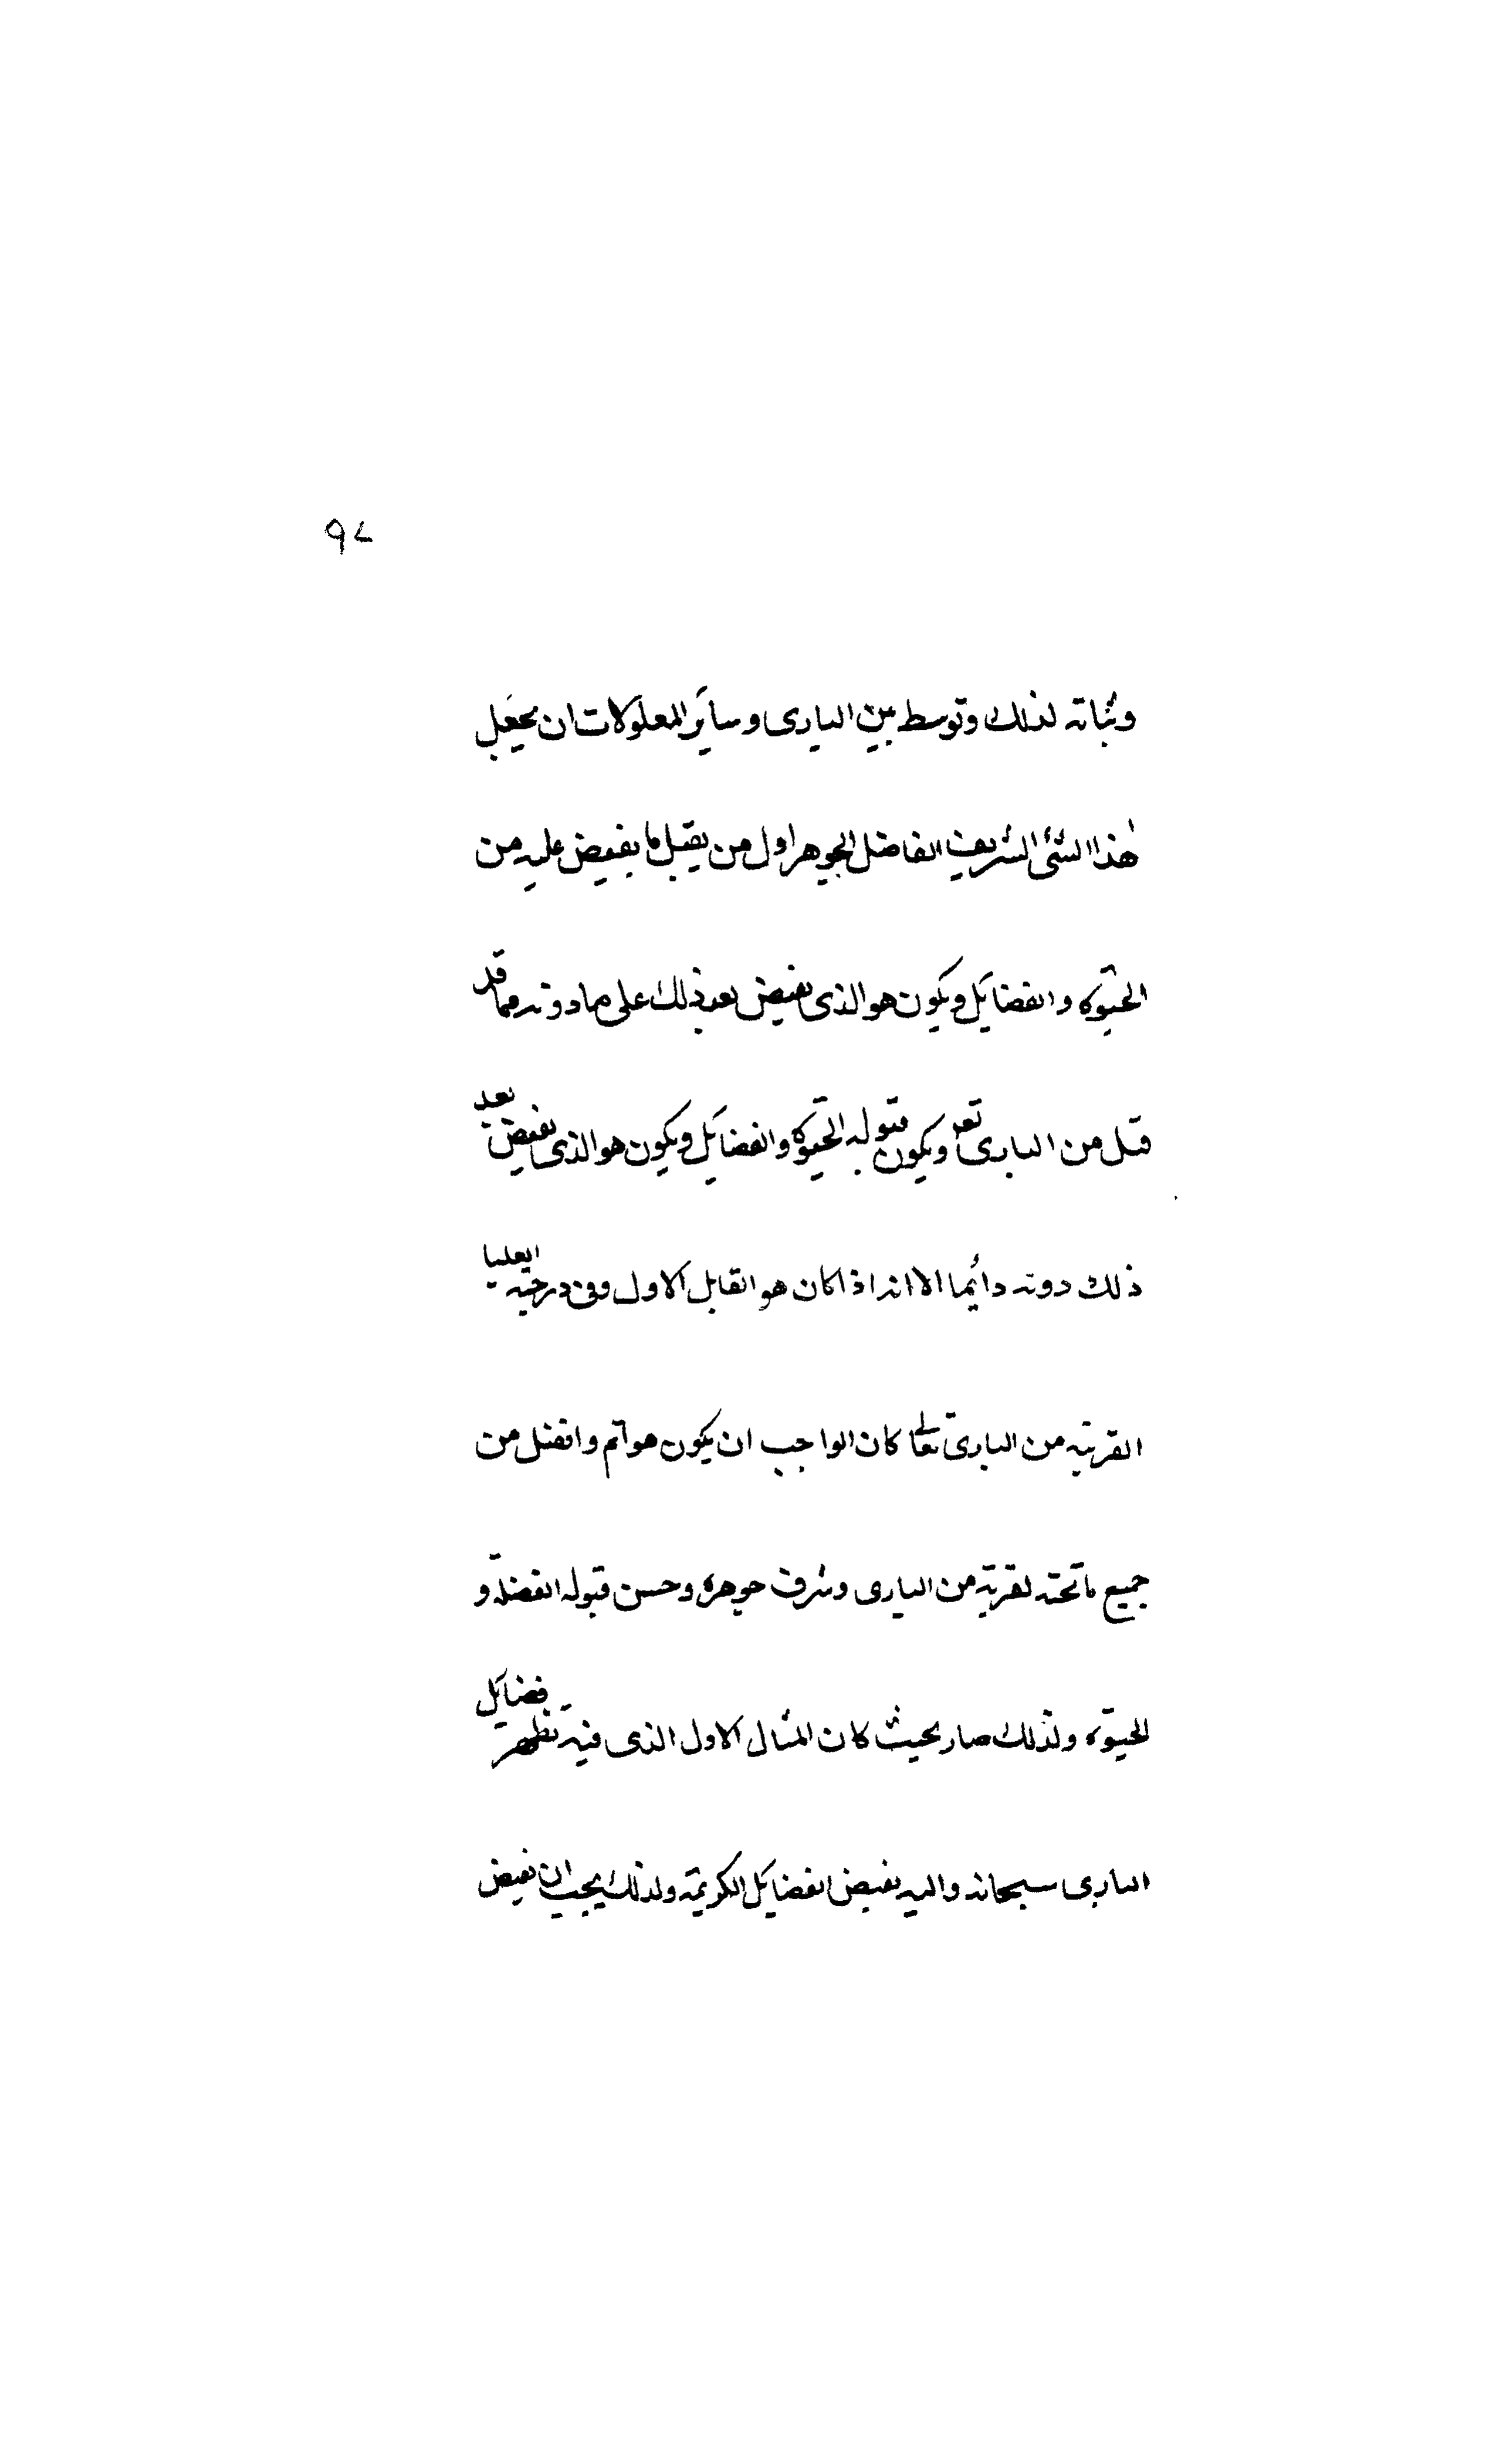 ٩٧
وثباته لذلك وتوسط بين البارى وسائر المعلولات ان يجعل
هذا الشئ الشريف الفاضل الجوهر اول من يقبل ما يفيض عليه من
الحيوة والفضايل ويكون هو الذى يفيض بعد ذلك على ما دونه مما قد
قبل من البارى تعـ ويكون قبوله الحيوة والفضايل ويكون هو الذى يفيض بعد
ذلك دونه دائما الا انه اذا كان هو القابل الاول وفى درجته العليا
القريبة من البارى تعالى كان الواجب ان يكون هو اتم وافضل من
جميع ما تحته لقربته من البارى وشرف جوهره وحسن قبوله الفضلة و
الحيوة ولذلك صار بحيث كان المثال الاول الذى فيه تظهر فضايل
البارى سبحانه واليه يفيض الفضايل الكريمة ولذلك يجب ان يفيض